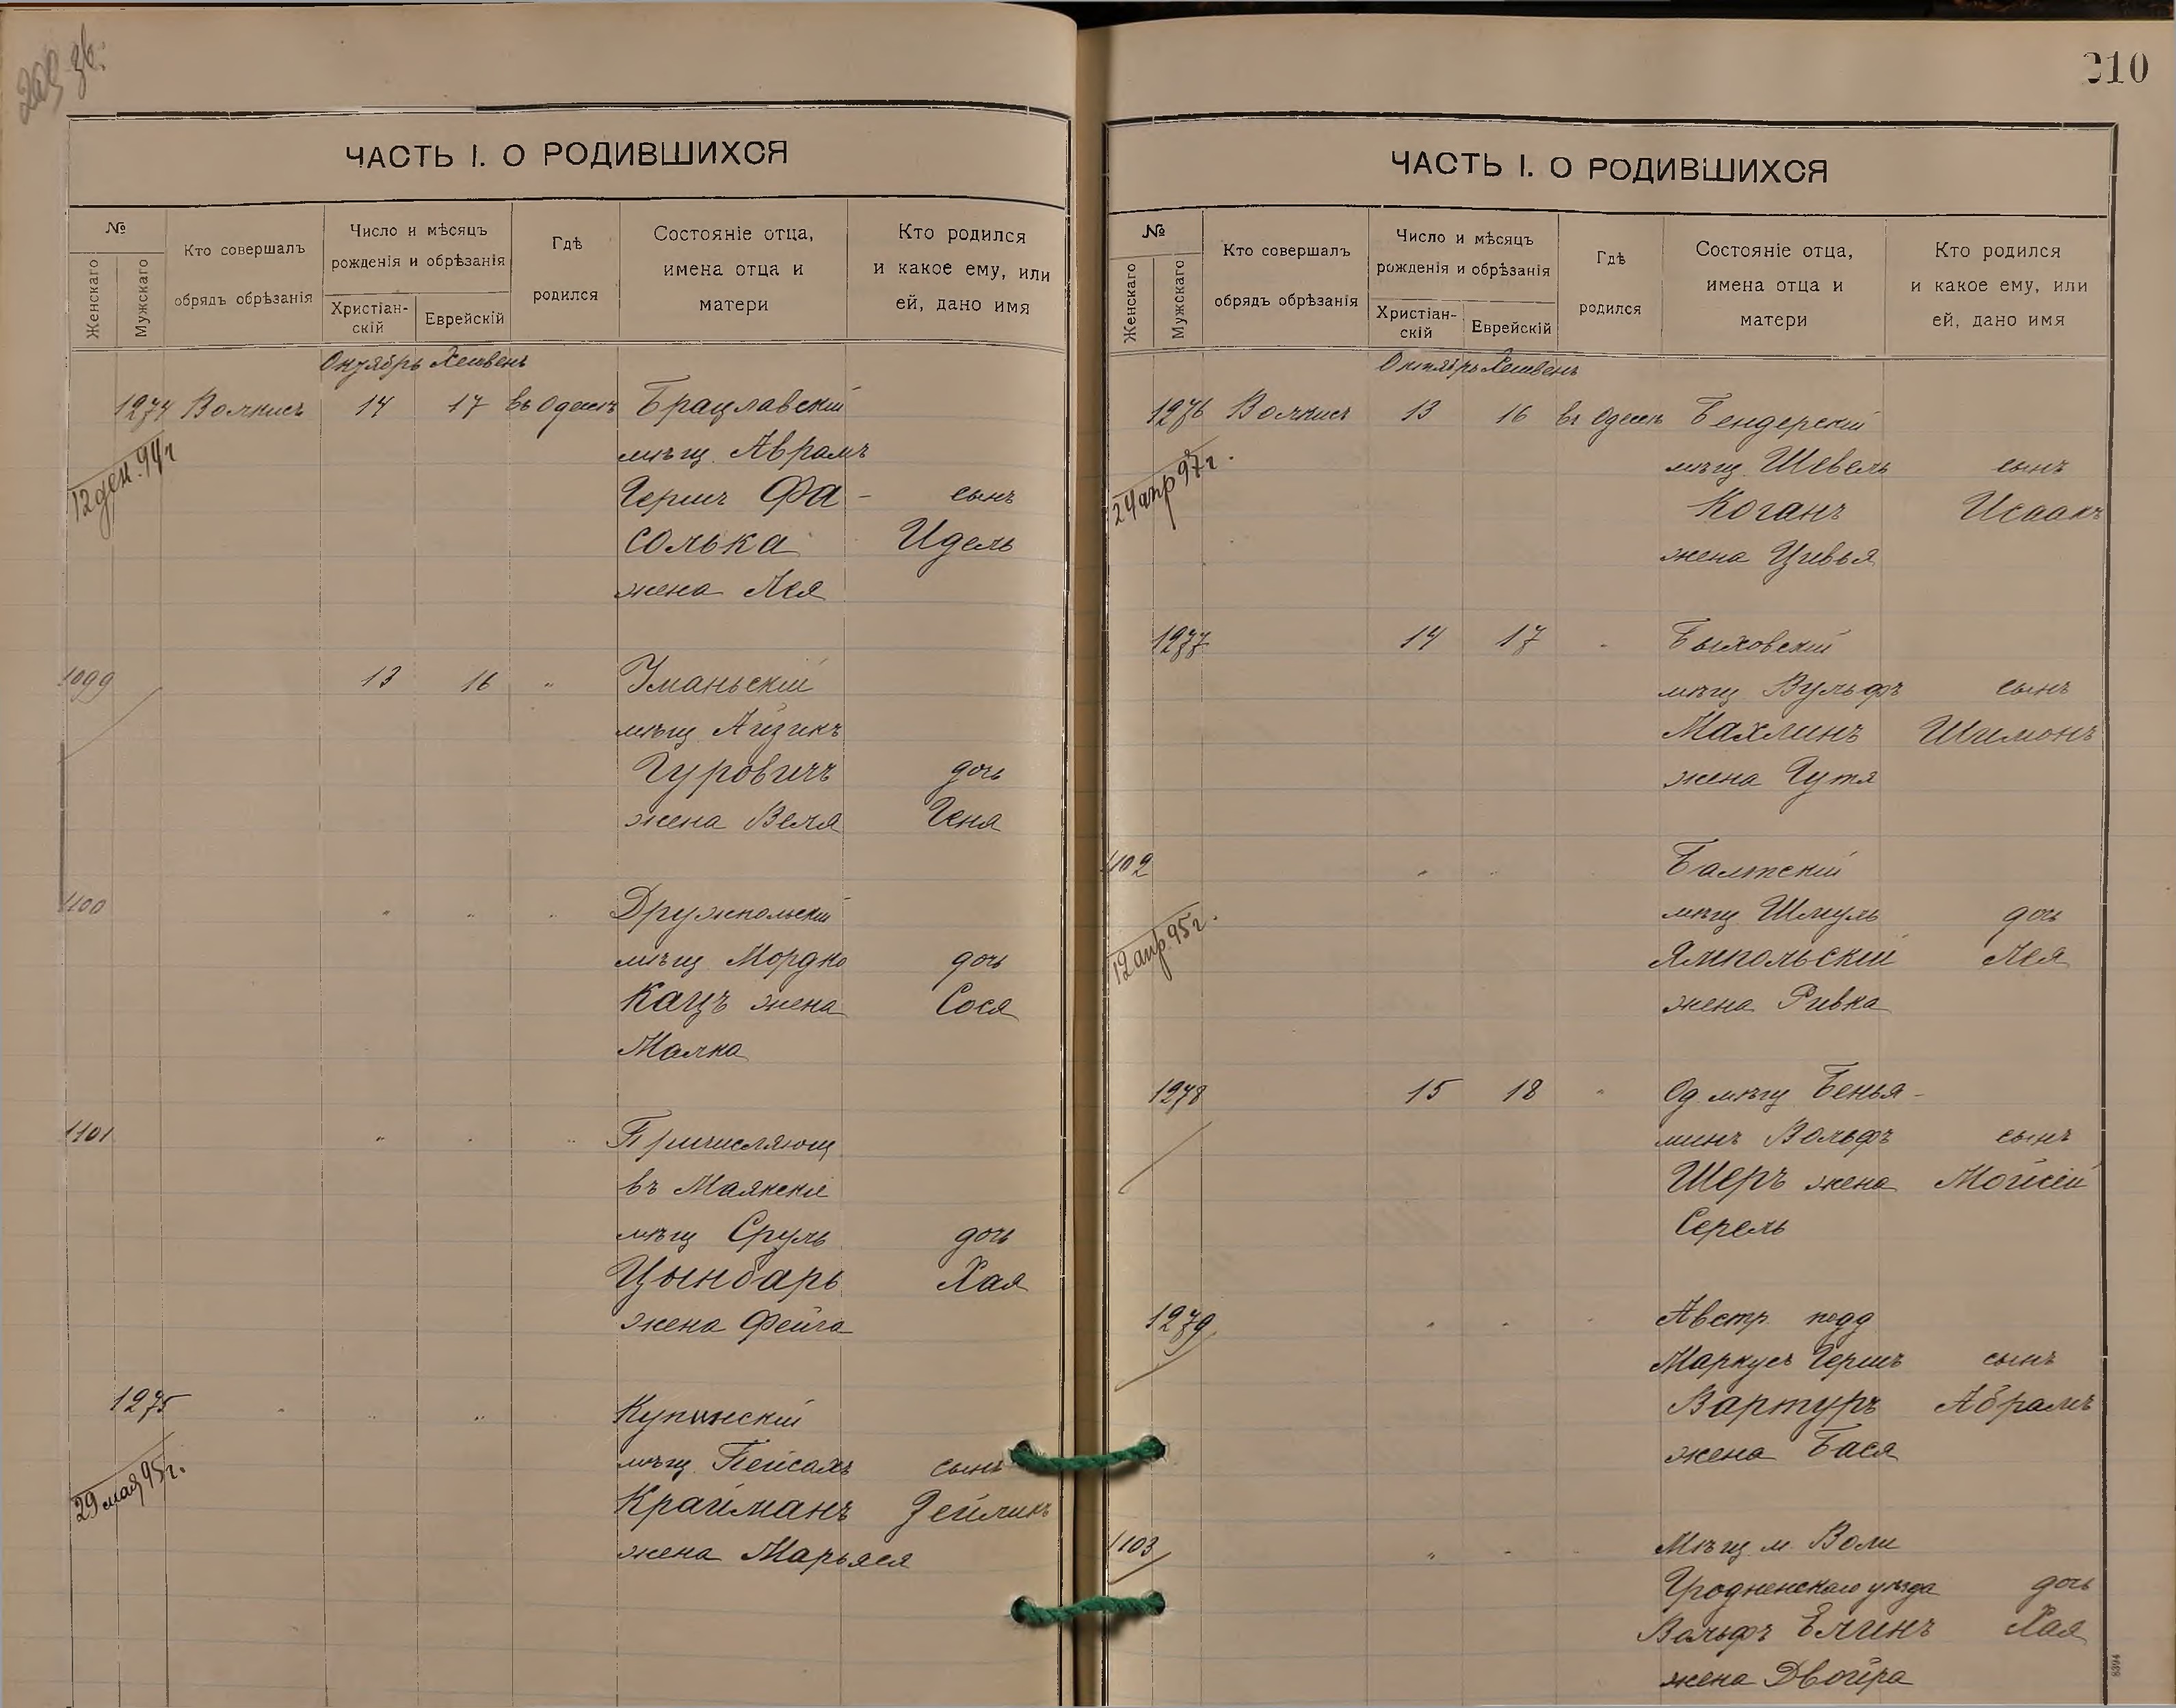 209 зв.
ЧАСТЬ I. О РОДИВШИХСЯ
№
Женскаго
Мужскаго
Кто совершалъ
обрядъ обрѣзанія
Число и мѣсяцъ
рожденія и обрѣзанія
Христіан-
скій
Еврейскій
Гдѣ
родился
Состояніе отца,
имена отца и
матери
Кто родился
и какое ему, или
ей, дано имя
Октябрь Хешвенъ
1274 14 17 въ Одессѣ Брацлавскій
12 дек. 94 г
мѣщ. Аврамъ
Гершъ Фа - сынъ
солька Идель
жена Лея
1099 13 16 " Уманьскій
мѣщ Айзикъ
Гуровичъ дочь
жена Веля Геня
1100 " " " Дружкпольскій
мѣщ Мордко дочь
Кацъ жена Сося
Малка
1101 " " " Причисляющ
въ Маякскіе
мѣщ Сруль дочь
Цынбаръ Хая
жена Фейга
1275 " " " Купинскій
29 мая 95 г.
мѣщ Пейсахъ сынъ
Крайманъ Зейликъ
жена Марьяся
210
ЧАСТЬ I. О РОДИВШИХСЯ
№
Женскаго
Мужскаго
Кто совершалъ
обрядъ обрѣзанія
Число и мѣсяцъ
рожденія и обрѣзанія
Христіан-
скій
Еврейскій
Гдѣ
родился
Состояніе отца,
имена отца и
матери
Кто родился
и какое ему, или
ей, дано имя
Октябрь Хешвенъ
1276 13 16 въ Одессѣ Бендерскій
24 апр 97 г.
мѣщ Шевель сынъ
Коганъ Исаакъ
жена Цивья
1277 14 17 " Быховскій
мѣщ Вульфъ сынъ
Махлинъ Шимонъ
жена Гутя
1102 " " Балтскій
12 апр. 95 г.
мѣщ Шмуль дочь
Ямпольскій Лея
жена Ривка
1278 15 18 " Од мѣщ Бенья-
минъ Вольфъ сынъ
Шеръ жена Мойсей
Серель
1279 " " " Австр. подд
Маркусъ Гершъ сынъ
Вартуръ Абрамъ
жена Бася
1103 " " Мѣщ м. Воли
Гродненскаго уѣзда дочь
Вольфъ Елинъ Хая
жена Двойра
8394